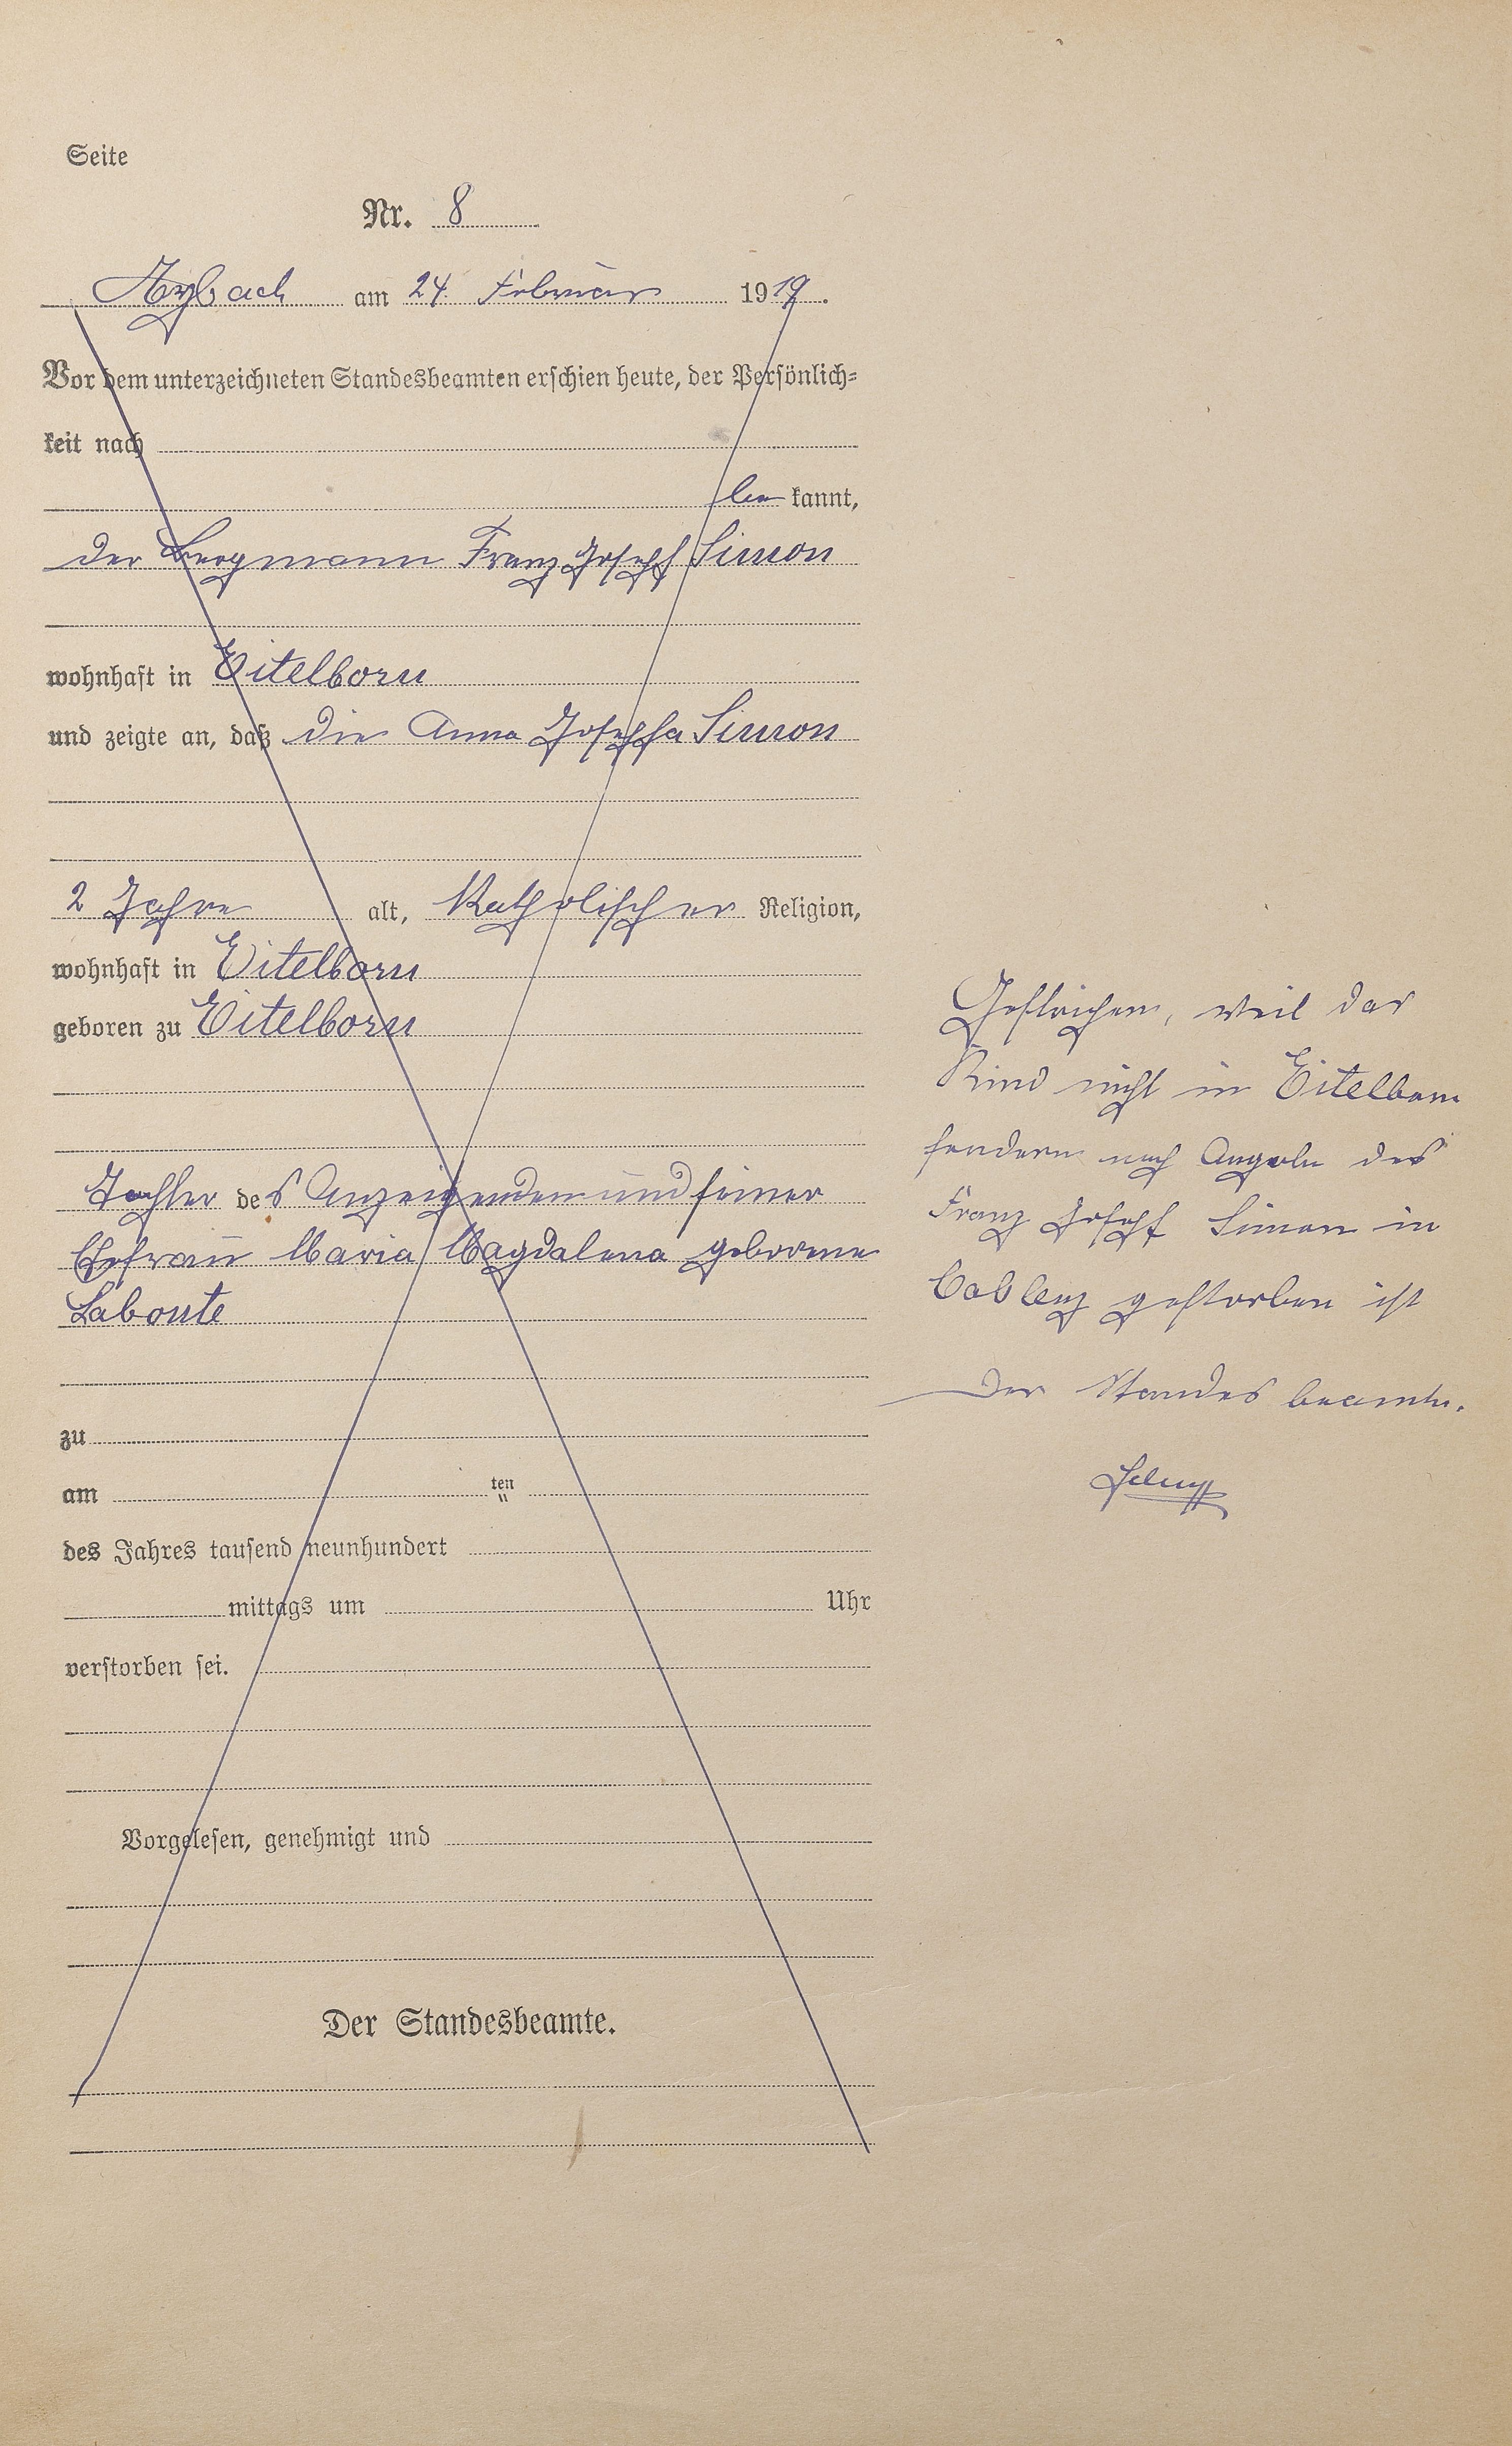 Seite
Nr. 8
Arzbach am 24. Februar 1919.
Vor dem unterzeichneten Standesbeamten erschien heute, der Persönlich=
keit nach
be kannt,
der Bergmann Franz Joseph Simon
wohnhaft in Eitelborn
und zeigte an, daß die Anna Josepha Simon
2 Jahre alt, Katholischer Religion,
wohnhaft in Eitelborn
geboren zu Eitelborn
Tochter des Anzeigenden und seiner
Ehefrau Maria Magdalena geborene
Labonte
zu
am ten
des Jahres tausend neunhundert
mittags um Uhr
verstorben sei.
Vorgelesen, genehmigt und
Der Standesbeamte.
Gestrichen, weil das
Kind nicht in Eitelborn
sondern nach Angabe des
Franz Joseph Simon in
Coblenz gestorben ist
Der Standesbeamte.